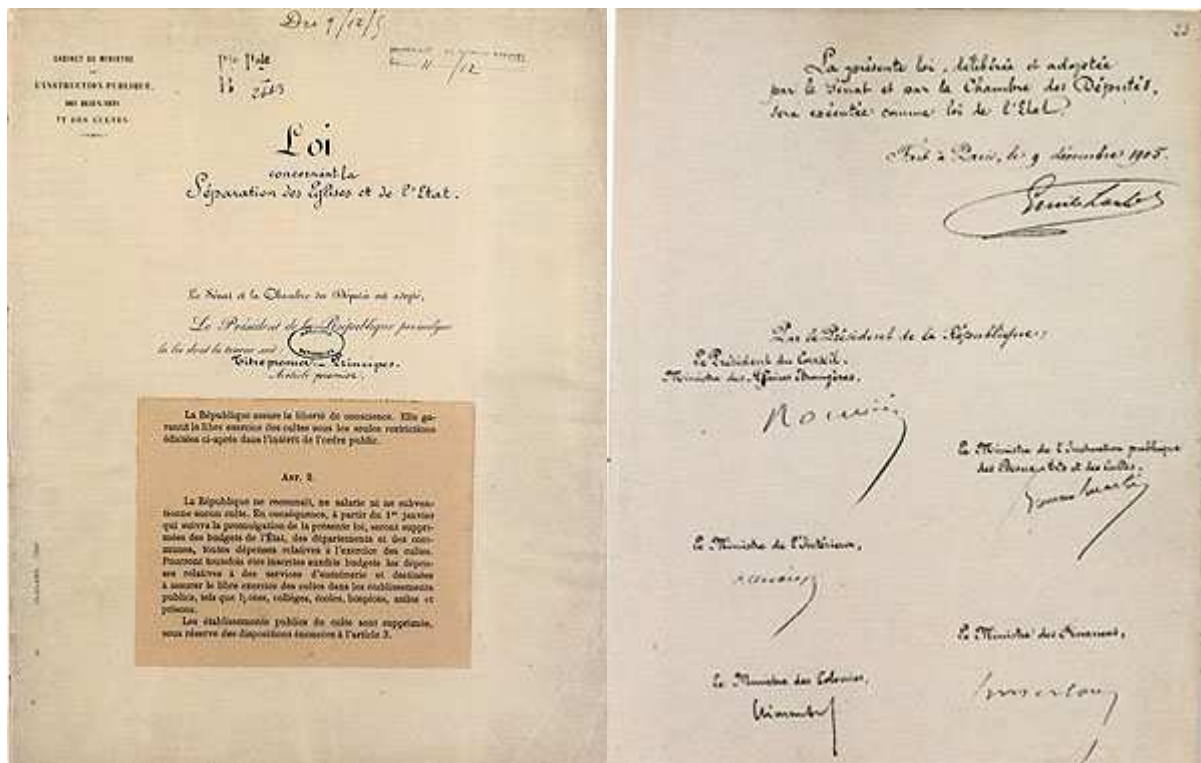 Du 9/12/5
CABINET DU MINISTRE
DE
L'INSTRUCTION PUBLIQUE,
DES BEAUX-ARTS
ET DES CULTES
11/12
2663
Loi
concernant la
Séparation des Eglises et de l'Etat.
Le Sénat et la Chambre des Députés ont adopté,
Le Président de la République promulgue
la loi dont la teneur suit :
Titre premier - Principes.
Article premier.
La République assure la liberté de conscience. Elle ga-
rantit le libre exercice des cultes sous les seules restrictions
édictées ci-après dans l'intérêt de l'ordre public.
ART. 2
La République ne reconnaît, ne salarie ni ne subven-
tionne aucun culte. En conséquence, à partir du 1er janvier
qui suivra la promulgation de la présente loi, seront suppri-
mées des budgets de l'État, des départements et des com-
munes, toutes dépenses relatives à l'exercice des cultes.
Pourront toutefois être inscrites auxdits budgets les dépen-
ses relatives à des services d'aumônerie et destinées
à assurer le libre exercice des cultes dans les établissements
publics, tels que lycées, collèges, écoles, hospices, asiles et
prisons.
Les établissements publics du culte sont supprimés,
sous réserve des dispositions énoncées à l'article 3.
23
La présente loi, délibérée et adoptée
par le Sénat et par la Chambre des Députés,
sera exécutée comme loi de l'Etat.
Fait à Paris, le 9 décembre 1905.
Emile Loubet
Par le Président de la République :
Le Président du Conseil,
Ministre des Affaires Etrangères,
Rouvier
Le Ministre de l'Instruction publique
des Beaux-Arts et des Cultes,
Le Ministre de l'Intérieur,
Le Ministre des Finances,
Le Ministre des Colonies,